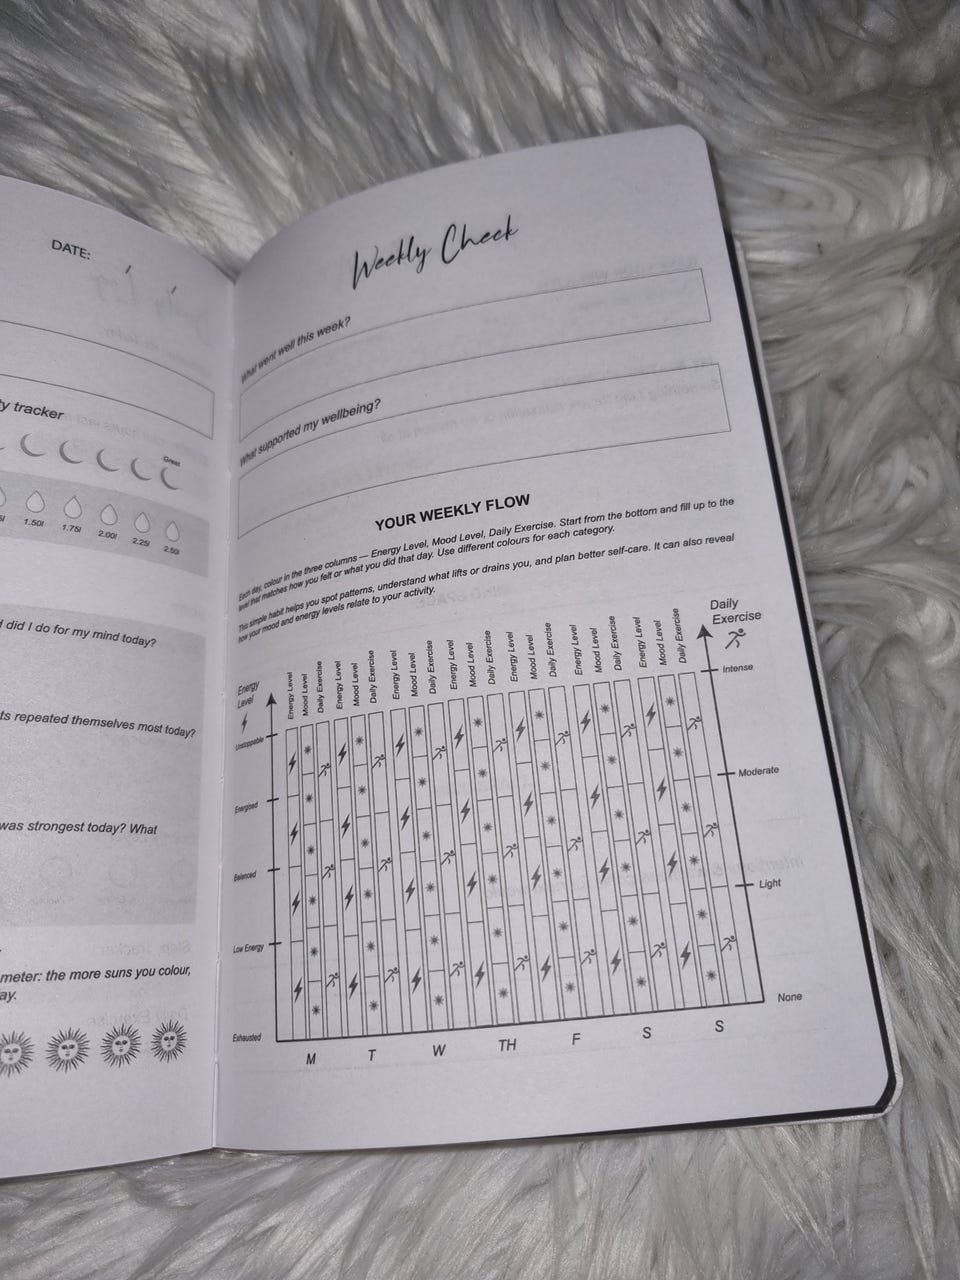 DATE:
y tracker
Great
1.50l
1.75l
2.00l
2.25l
2.50l
did I do for my mind today?
ts repeated themselves most today?
was strongest today? What
meter: the more suns you colour,
ay.
Weekly Check
What went well this week?
What supported my wellbeing?
YOUR WEEKLY FLOW
Each day, colour in the three columns — Energy Level, Mood Level, Daily Exercise. Start from the bottom and fill up to the
level that matches how you felt or what you did that day. Use different colours for each category.
This simple habit helps you spot patterns, understand what lifts or drains you, and plan better self-care. It can also reveal
how your mood and energy levels relate to your activity.
Energy
Level
Daily
Exercise
Energy Level
Mood Level
Daily Exercise
Energy Level
Mood Level
Daily Exercise
Energy Level
Mood Level
Daily Exercise
Energy Level
Mood Level
Daily Exercise
Energy Level
Mood Level
Daily Exercise
Energy Level
Mood Level
Daily Exercise
Energy Level
Mood Level
Daily Exercise
Unstoppable
Energised
Balanced
Low Energy
Exhausted
Intense
Moderate
Light
None
M T W TH F S S